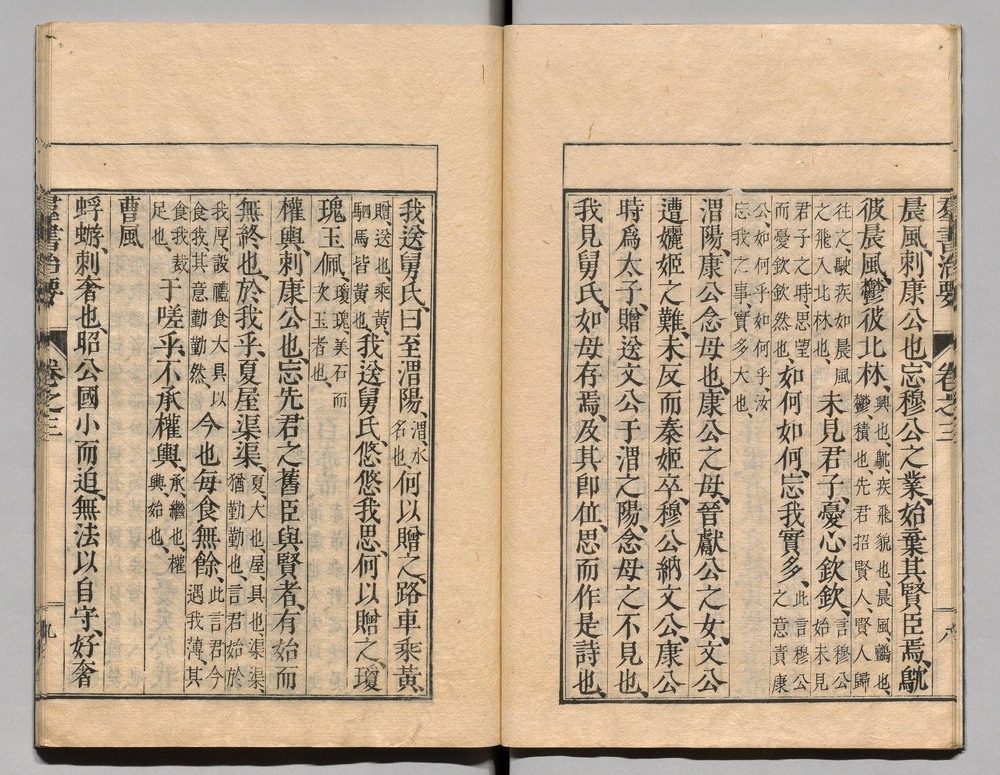 羣書治要 卷之三 八
晨風、刺康公也、忘穆公之業、始棄其賢臣焉、鴥
彼晨風、鬱彼北林、興也、鴥、疾飛貌也、晨風、鸇也、鬱、積也、先君招賢人、賢人歸
往之、駛疾如晨風之飛入北林也、未見君子、憂心欽欽、言穆公始未見
君子之時、思望而憂欽欽然也、如何如何、忘我實多、此言穆公之意責康
公、如何乎如何乎、汝忘我之事、實多大也、
渭陽、康公念母也、康公之母、晉獻公之女、文公
遭孋姬之難、未反而秦姬卒、穆公納文公、康公
時爲太子、贈送文公于渭之陽、念母之不見也、
我見舅氏、如母存焉、及其卽位、思而作是詩也、
我送舅氏、曰至渭陽、渭、水名也、何以贈之、路車乘黃、
贈送也、乘黃、駟馬皆黃也、我送舅氏、悠悠我思、何以贈之、瓊
瑰玉佩、瓊瑰、美石而次玉者也、
權輿、刺康公也、忘先君之舊臣與賢者、有始而
無終也、於我乎、夏屋渠渠、夏、大也、屋、具也、渠渠猶勤勤也、言君始於
我厚、設禮食大具以食我、其意勤勤然、今也每食無餘、此言君今遇我薄、其
食我裁足也、于嗟乎、不承權輿、承、繼也、權輿、始也、
曹風
蜉蝣、刺奢也、昭公國小而迫、無法以自守、好奢
羣書治要 卷之三 九